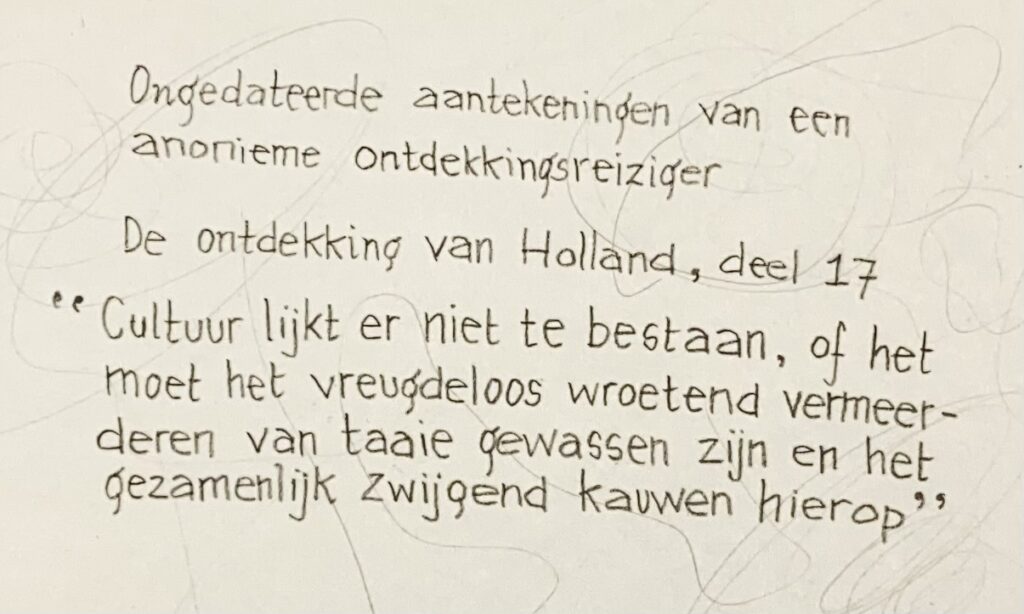 Ongedateerde aantekeningen van een
anonieme ontdekkingsreiziger
De ontdekking van Holland, deel 17
“Cultuur lijkt er niet te bestaan, of het
moet het vreugdeloos wroetend vermeer-
deren van taaie gewassen zijn en het
gezamenlijk zwijgend kauwen hierop”